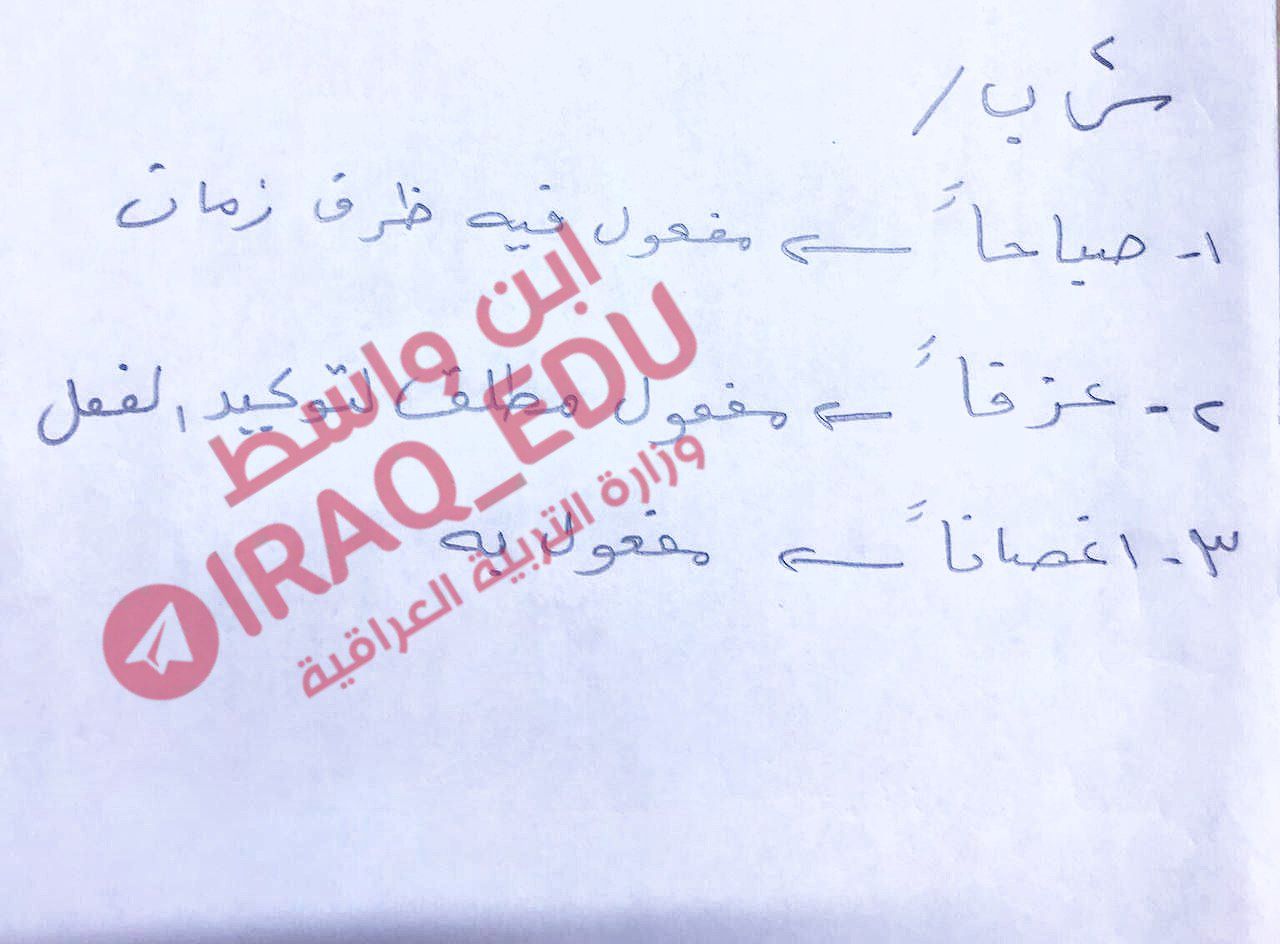 س٢ ب /
١- صباحاً ← مفعول فيه ظرف زمان
٢- عزفاً ← مفعول مطلق لتوكيد الفعل
٣- اغصاناً ← مفعول به
ابن واسط
IRAQ_EDU
وزارة التربية العراقية